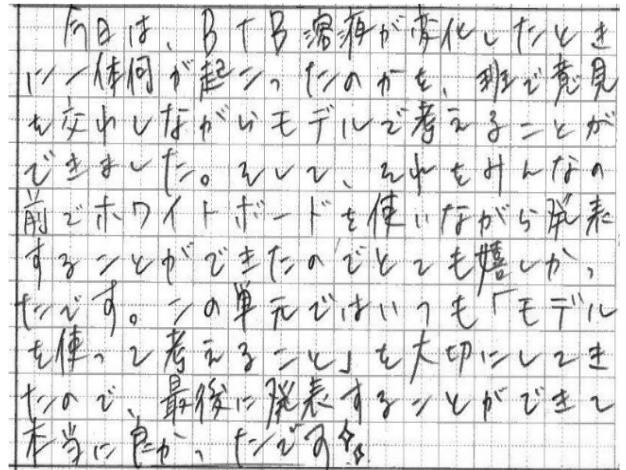 今日は、BTB溶液が変化したとき
に一体何が起こったのかを、班で意見
を交わしながらモデルで考えることが
できました。そして、それをみんなの
前でホワイトボードを使いながら発表
することができたのでとても嬉しかっ
たです。この単元ではいつも「モデル
を使って考えること」を大切にしてき
たので、最後に発表することができて
本当に良かったです